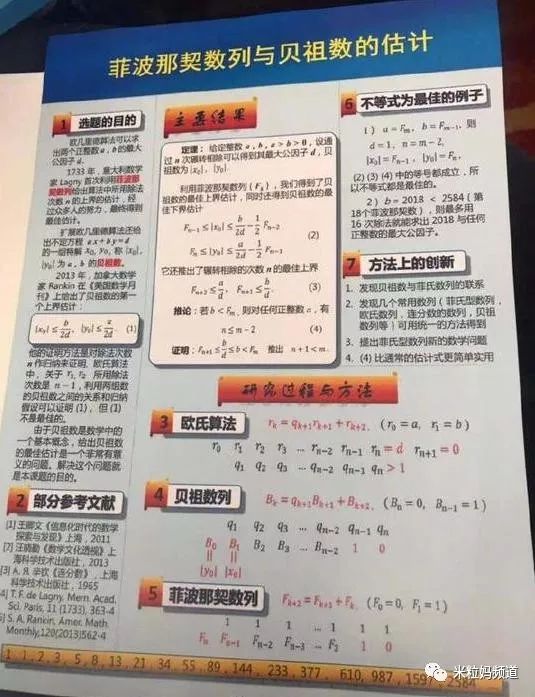 菲波那契数列与贝祖数的估计
1 选题的目的
欧几里德算法可以求
出两个正整数 a, b 的最大
公因子 d.
1733 年, 意大利数学
家 Lagny 首次利用菲波那
契数列给出算法中所用除法
次数 n 的上界的估计, 经
过众多人的努力, 最终得到
最佳估计。
扩展欧几里德算法还给
出不定方程 ax + by = d
的一组特解 x₀, y₀, 称 |x₀|,
|y₀| 为 a, b 的贝祖数。
2013 年, 加拿大数学
家 Rankin 在《美国数学月
刊》上给出了贝祖数的第一
个上界估计:
|x₀| ≤ b/2d, |y₀| ≤ a/2d. (1)
他的证明方法是对除法次数
n 作归纳来证明. 欧氏算法
中, 关于 r₁, r₂ 所用除法
次数是 n − 1, 利用两组数
的贝祖数之间的关系和归纳
假设可以证明 (1), 但 (1)
不是最佳的。
由于贝祖数是数学中的
一个基本概念, 给出贝祖数
的最佳估计是一个非常有意
义的问题。解决这个问题就
是本课题的目的。
2 部分参考文献
[1] 王卿文《信息化时代的数学
探索与发现》上海, 2011
[2] 汪晓勤《数学文化透视》上
海科学技术出版社, 2013
[3] A. Я. 辛钦《连分数》, 上海
科学技术出版社, 1965
4] T. F. de Lagny, Mem. Acad.
Sci. Paris, 11 (1733), 363-4
5] S. A. Rankin, Amer. Math.
Monthly,120(2013)562-4
主要结果
定理: 给定整数 a, b, a > b > 0, 设通
过 n 次辗转相除可以得到其最大公因子 d, 贝
祖数为 |x₀|, |y₀|.
利用菲波那契数列 (Fₖ), 我们得到了贝
祖数的最佳上界估计, 同时还得到贝祖数的最
佳下界估计
Fₙ₋₁ ≤ |x₀| ≤ b/2d − 1/2 Fₙ₋₂
(2)
Fₙ ≤ |y₀| ≤ a/2d − 1/2 Fₙ₋₁
它还推出了辗转相除的次数 n 的最佳上界
Fₙ₊₂ ≤ a/d, Fₙ₊₁ ≤ b/d. (3)
推论: 若 b < Fₘ, 则对任何正整数 a, 有
n ≤ m − 2 (4)
证明: Fₙ₊₁ ≤ b/d ≤ b < Fₘ 推出 n + 1 < m.
6 不等式为最佳的例子
1) a = Fₘ, b = Fₘ₋₁, 则
d = 1, n = m − 2,
|x₀| = Fₙ₋₁, |y₀| = Fₙ.
(2) (3) (4) 中的等号都成立, 所
以不等式都是最佳的。
2) b = 2018 < 2584 (第
18个菲波那契数), 则最多用
16 次除法就能求出 2018 与任何
正整数的最大公因子。
7 方法上的创新
1. 发现贝祖数与菲氏数列的联系
2. 发现几个常用数列 (菲氏型数列,
欧氏数列, 连分数的数列, 贝祖
数列等) 可用统一的方法得到
3. 提出菲氏型数列新的数学问题
4. (4) 比通常的估计式更简单实用
研究过程与方法
3 欧氏算法 rₖ = qₖ₊₁rₖ₊₁ + rₖ₊₂, (r₀ = a, r₁ = b)
r₀ r₁ r₂ r₃ … rₙ₋₂ rₙ₋₁ rₙ = d rₙ₊₁ = 0
q₁ q₂ q₃ … qₙ₋₂ qₙ₋₁ qₙ > 1
4 贝祖数列 Bₖ = qₖ₊₁Bₖ₊₁ + Bₖ₊₂, (Bₙ = 0, Bₙ₋₁ = 1)
q₁ q₂ q₃ … qₙ₋₂ qₙ₋₁ qₙ
B₀ B₁ B₂ B₃ … Bₙ₋₂ 1 0
|| ||
|y₀| |x₀|
5 菲波那契数列 Fₖ₊₂ = Fₖ₊₁ + Fₖ, (F₀ = 0, F₁ = 1)
1 1 1 … 1 1 1
Fₙ Fₙ₋₁ Fₙ₋₂ Fₙ₋₃ … F₂ 1 0
1, 1, 2, 3, 5, 8, 13, 21, 34, 55, 89, 144, 233, 377, 610, 987, 1597, 2584
米粒妈频道